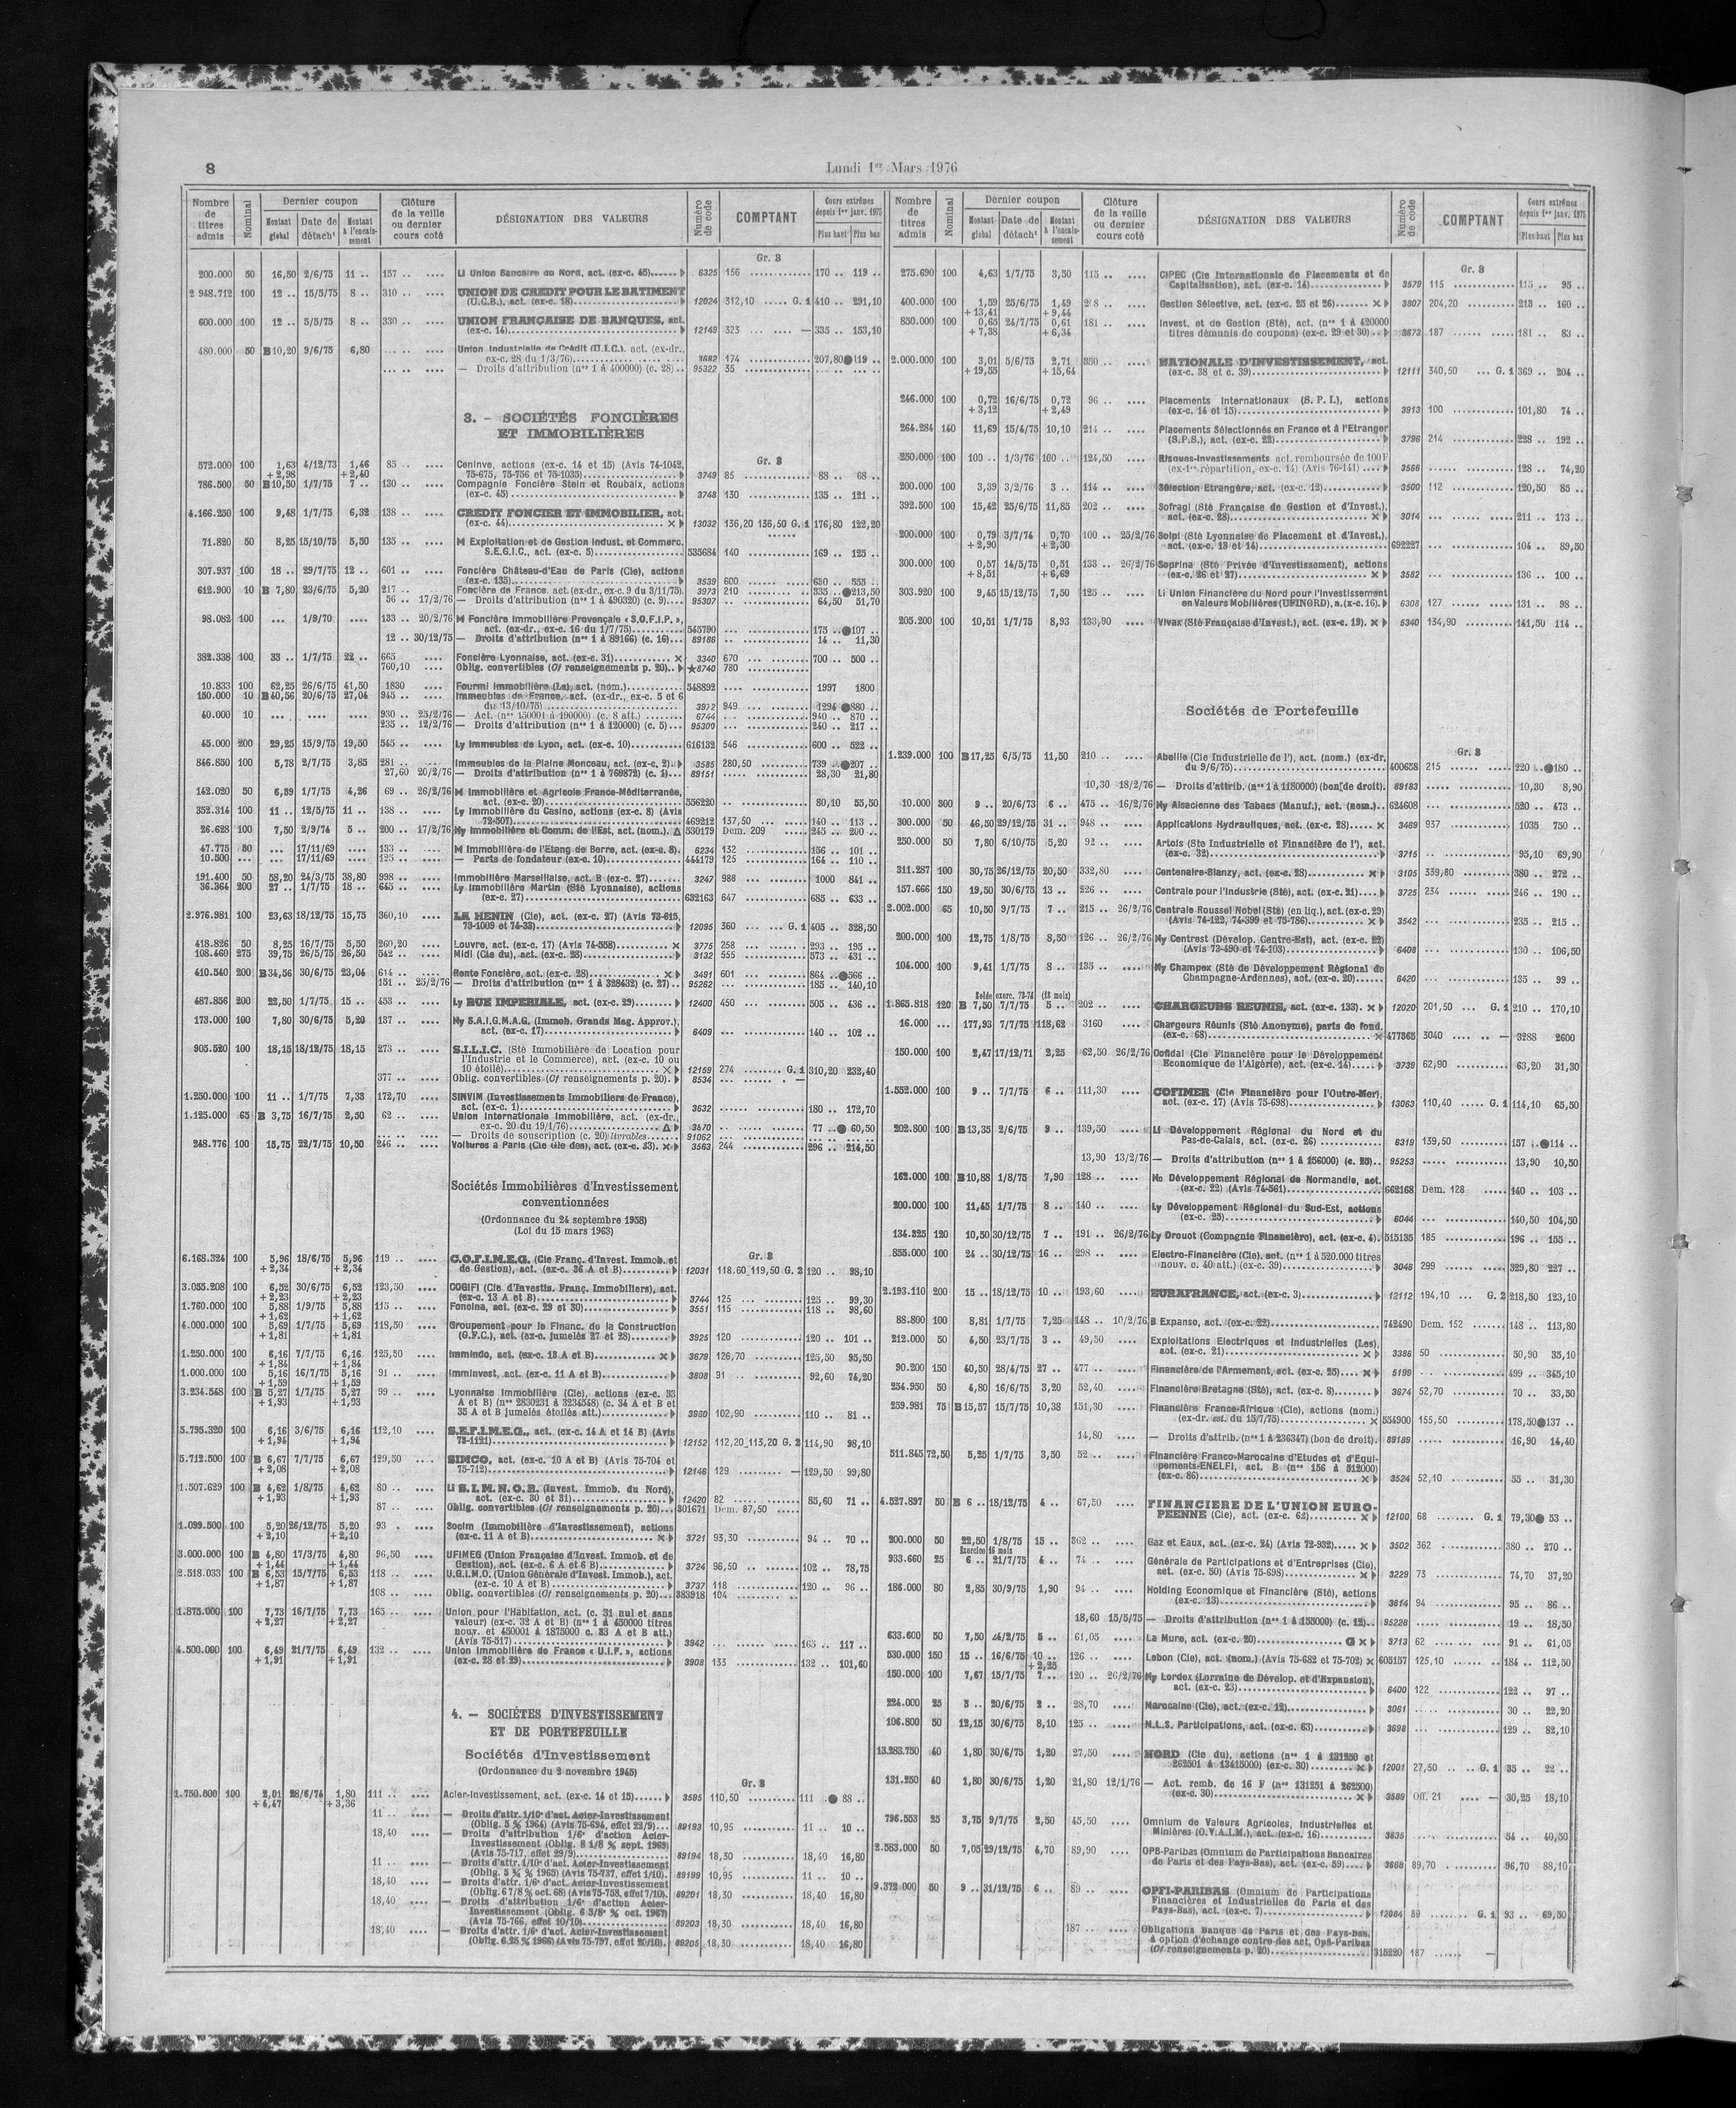 8
Lundi 1er Mars 1976
Nombre de titres admis
Nominal
Dernier coupon
Montant global
Date de détacht
Montant à l'encais-sement
Clôture de la veille ou dernier cours coté
DÉSIGNATION DES VALEURS
Numéro de code
COMPTANT
Cours extrêmes depuis 1er janv. 1975
Plus haut
Plus bas
Gr. 3
200.000 50 16,50 2/6/75 11 .. 157 .. .... Li Union Bancaire du Nord, act. (ex-c. 45) 6325 156 170 .. 119 ..
2 948.712 100 12 .. 15/5/75 8 .. 310 .. .... UNION DE CREDIT POUR LE BATIMENT
(U.C.B.), act. (ex-c. 18) 12024 312,10 ..... G. 1 410 .. 291,10
600.000 100 12 .. 5/5/75 8 .. 330 .. .... UNION FRANÇAISE DE BANQUES, act.
(ex-c. 14) 12149 323 ... .... — 335 .. 153,10
480.000 50 B 10,20 9/6/75 6,80 Union Industrielle de Crédit (U.I.C.), act. (ex-dr.,
ex-c. 28 du 1/3/76) 3682 174 207,80 ● 119 ..
— Droits d'attribution (nos 1 à 400000) (c. 28) 95322 35
3. - SOCIÉTÉS FONCIÈRES
ET IMMOBILIÈRES
Gr. 3
572.000 100 1,63 4/12/73 1,46 85 .. .... Ceninve, actions (ex-c. 14 et 15) (Avis 74-1042,
+ 2,98 + 2,40 75-675, 75-756 et 75-1035) 3749 85 88 .. 68 ..
786.500 50 B 10,50 1/7/75 7 .. 130 .. .... Compagnie Foncière Stein et Roubaix, actions
(ex-c. 45) 3748 130 135 .. 121 ..
4.166.250 100 9,48 1/7/75 6,32 138 .. .... CREDIT FONCIER ET IMMOBILIER, act.
(ex-c. 44) × 13032 136,20 136,50 G. 1 176,80 122,20
71.820 50 8,25 15/10/75 5,50 135 .. .... M Exploitation et de Gestion Indust. et Commerc.
S.E.G.I.C., act. (ex-c. 5) 535684 140 169 .. 125 ..
307.937 100 18 .. 29/7/75 12 .. 601 .. .... Foncière Château-d'Eau de Paris (Cie), actions
(ex-c. 135) 3539 600 650 .. 555 ..
612.900 10 B 7,80 23/6/75 5,20 217 .. Foncière de France, act. (ex-dr., ex-c. 9 du 3/11/75) 3973 210 335 .. ● 213,50
56 .. 17/2/76 — Droits d'attribution (nos 1 à 490320) (c. 9) 95307 64,50 51,70
98.082 100 ... 1/9/70 .... 133 .. 20/2/76 M Foncière Immobilière Provençale « S.O.F.I.P. »,
act. (ex-dr., ex-c. 16 du 1/7/75) 545790 175 .. ● 107 ..
12 .. 30/12/75 — Droits d'attribution (nos 1 à 89166) (c. 16) 89186 14 .. 11,30
382.338 100 33 .. 1/7/75 22 .. 665 .... Foncière Lyonnaise, act. (ex-c. 31) × 3340 670 700 .. 500 ..
760,10 .... Oblig. convertibles (Cf renseignements p. 20) ★ 8740 780
10.833 100 62,25 26/6/75 41,50 1830 .... Fourmi Immobilière (La), act. (nom.) 548892 1997 1800
150.000 10 B 40,56 20/6/75 27,04 945 .. .... Immeubles de France, act. (ex-dr., ex-c. 5 et 6
du 13/10/75) 3972 949 1294 ● 880 ..
40.000 10 ... .... .... 930 .. 25/2/76 — Act. (nos 150001 à 190000) (c. 8 att.) 6744 940 .. 870 ..
235 .. 12/2/76 — Droits d'attribution (nos 1 à 120000) (c. 5) 95309 240 .. 217 ..
45.000 200 29,25 15/9/75 19,50 545 .. .... Ly Immeubles de Lyon, act. (ex-c. 10) 616132 546 600 .. 522 ..
846.850 100 5,78 2/7/75 3,85 281 .. Immeubles de la Plaine Monceau, act. (ex-c. 2) 3585 280,50 739 .. ● 207 ..
27,60 20/2/76 — Droits d'attribution (nos 1 à 769872) (c. 1) 89151 28,30 21,80
142.020 50 6,39 1/7/75 4,26 69 .. 26/2/76 M Immobilière et Agricole France-Méditerranée,
act. (ex-c. 20) 556220 80,10 55,50
352.314 100 11 .. 12/5/75 11 .. 138 .. .... Ly Immobilière du Casino, actions (ex-c. 8) (Avis
72-507) 469212 137,50 140 .. 113 ..
26.628 100 7,50 2/9/74 5 .. 200 .. 17/2/76 Ny Immobilière et Comm. de l'Est, act. (nom.) Δ 530179 Dem. 209 245 .. 200 ..
47.775 50 ... 17/11/69 .... 133 .. .... M Immobilière de l'Etang de Berre, act. (ex-c. 8) 6234 132 156 .. 101 ..
10.500 ... ... 17/11/69 .... 125 .. .... — Parts de fondateur (ex-c. 10) 444179 125 164 .. 110 ..
191.400 50 58,20 24/3/75 38,80 998 .. .... Immobilière Marseillaise, act. B (ex-c. 27) 3247 988 1000 841 ..
36.364 200 27 .. 1/7/75 18 .. 645 .. .... Ly Immobilière Martin (Sté Lyonnaise), actions
(ex-c. 27) 632163 647 685 .. 633 ..
2.976.981 100 23,63 18/12/75 15,75 360,10 .... LA HENIN (Cie), act. (ex-c. 27) (Avis 73-615,
73-1009 et 74-33) 12095 360 ... G. 1 405 .. 328,50
418.826 50 8,25 16/7/75 5,50 260,20 .... Louvre, act. (ex-c. 17) (Avis 74-558) × 3775 258 293 .. 195 ..
108.460 275 39,75 26/5/75 26,50 542 .. .... Midi (Cie du), act. (ex-c. 28) 3132 555 573 .. 431 ..
410.540 200 B 34,56 30/6/75 23,04 614 .. .... Rente Foncière, act. (ex-c. 28) × 3491 601 864 .. ● 566 ..
151 .. 25/2/76 — Droits d'attribution (nos 1 à 328432) (c. 27) 95262 185 .. 140,10
487.856 200 22,50 1/7/75 15 .. 453 .. .... Ly RUE IMPERIALE, act. (ex-c. 29) 12400 450 505 .. 436 ..
173.000 100 7,80 30/6/75 5,20 137 .. .... Ny S.A.I.G.M.A.G. (Immob. Grands Mag. Approv.),
act. (ex-c. 17) 6409 140 .. 102 ..
905.520 100 18,15 18/12/75 18,15 273 .. .... S.I.L.I.C. (Sté Immobilière de Location pour
l'Industrie et le Commerce), act. (ex-c. 10 ou
10 étoilé) × 12159 274 G. 1 310,20 232,40
377 .. .... Oblig. convertibles (Cf renseignements p. 20) 8534 —
1.250.000 100 11 .. 1/7/75 7,33 172,70 .... SINVIM (Investissements Immobiliers de France),
act. (ex-c. 1) 3632 180 .. 172,70
1.125.000 65 B 3,75 16/7/75 2,50 62 .. .... Union Internationale Immobilière, act. (ex-dr.,
ex-c. 20 du 19/1/76) Δ 3570 77 .. ● 60,50
— Droits de souscription (c. 20) 91062
248.776 100 15,75 22/7/75 10,50 246 .. .... Voitures à Paris (Cie Gle des), act. (ex-c. 53) × 3563 244 296 .. 214,50
Sociétés Immobilières d'Investissement
conventionnées
(Ordonnance du 24 septembre 1958)
(Loi du 15 mars 1963)
Gr. 3
6.168.324 100 5,96 18/6/75 5,96 119 .. .... C.O.F.I.M.E.G. (Cie Franç. d'Invest. Immob. et
+ 2,34 + 2,34 de Gestion), act. (ex-c. 36 A et B) 12031 118,60 119,50 G. 2 120 .. 98,10
3.055.208 100 6,52 30/6/75 6,52 123,50 .... COGIFI (Cie d'Investis. Franç. Immobiliers), act.
+ 2,23 + 2,23 (ex-c. 13 A et B) 3744 125 125 .. 99,30
1.760.000 100 5,88 1/9/75 5,88 115 .. .... Foncina, act. (ex-c. 29 et 30) 3551 115 118 .. 98,60
+ 1,62 + 1,62
4.000.000 100 5,69 1/7/75 5,69 118,50 .... Groupement pour le Financ. de la Construction
+ 1,81 + 1,81 (G.F.C.), act. (ex-c. jumelés 27 et 28) 3925 120 120 .. 101 ..
1.250.000 100 6,16 7/7/75 6,16 125,50 .... Immindo, act. (ex-c. 13 A et B) × 3679 126,70 125,50 95,50
+ 1,84 + 1,84
1.000.000 100 5,16 16/7/75 5,16 91 .. .... Imminvest, act. (ex-c. 11 A et B) 3808 91 92,60 74,20
+ 1,59 + 1,59
3.234.548 100 B 5,27 1/7/75 5,27 99 .. .... Lyonnaise Immobilière (Cie), actions (ex-c. 33
+ 1,93 + 1,93 A et B) (nos 2830231 à 3234548) (c. 34 A et B et
35 A et B jumelés étoilés att.) 3960 102,90 110 .. 81 ..
5.795.320 100 6,16 3/6/75 6,16 112,10 .... S.E.F.I.M.E.G., act. (ex-c. 14 A et 14 B) (Avis
+ 1,94 + 1,94 73-1121) 12152 112,20 113,20 G. 2 114,90 98,10
5.712.500 100 B 6,67 7/7/75 6,67 129,50 .... SIMCO, act. (ex-c. 10 A et B) (Avis 75-704 et
+ 2,08 + 2,08 75-712) 12146 129 — 129,50 99,80
1.507.629 100 B 4,62 1/8/75 4,62 80 .. .... Li S.I.M.N.O.R. (Invest. Immob. du Nord),
+ 1,93 + 1,93 act. (ex-c. 30 et 31) 12420 82 85,60 71 ..
87 .. .... Oblig. convertibles (Cf renseignements p. 20) 301671 Dem. 87,50
1.099.500 100 5,20 26/12/75 5,20 93 . .... Socim (Immobilière d'Investissement), actions
+ 2,10 + 2,10 (ex-c. 11 A et B) × 3721 93,30 94 .. 70 ..
3.000.000 100 B 4,80 17/3/75 4,80 96,50 .... UFIMEG (Union Française d'Invest. Immob. et de
+ 1,44 + 1,44 Gestion), act. (ex-c. 6 A et 6 B) 3724 96,50 102 .. 78,75
2.518.033 100 B 6,53 15/7/75 6,53 118 .. .... U.G.I.M.O. (Union Générale d'Invest. Immob.), act.
+ 1,87 + 1,87 (ex-c. 10 A et B) 3737 118 120 .. 96 ..
108 .. .... Oblig. convertibles (Cf renseignements p. 20) 383918 104
1.875.000 100 7,73 16/7/75 7,73 165 .. .... Union pour l'Habitation, act. (c. 31 nul et sans
+ 2,27 + 2,27 valeur) (ex-c. 32 A et B) (nos 1 à 450000 titres
nouv. et 450001 à 1875000 c. 33 A et B att.)
(Avis 75-517) 3942 165 .. 117 ..
4.500.000 100 6,49 21/7/75 6,49 132 .. .... Union Immobilière de France « U.I.F. », actions
+ 1,91 + 1,91 (ex-c. 28 et 29) 3908 133 132 .. 101,60
4. — SOCIÉTES D'INVESTISSEMENT
ET DE PORTEFEUILLE
Sociétés d'Investissement
(Ordonnance du 2 novembre 1945)
Gr. 3
1.750.000 100 2,01 28/6/74 1,80 111 .. .... Acier-Investissement, act. (ex-c. 14 et 15) 3595 110,50 111 .. ● 88 ..
+ 4,47 + 3,36
11 .. .... — Droits d'attr. 1/10e d'act. Acier-Investissement
(Oblig. 5 % 1964) (Avis 75-694, effet 22/9) 89193 10,95 11 .. 10 ..
18,40 .... — Droits d'attribution 1/6e d'action Acier-
Investissement (Oblig. 8 1/8 % sept. 1969)
(Avis 75-717, effet 29/9) 89194 18,30 18,40 16,80
11 .. .... — Droits d'attr. 1/10e d'act. Acier-Investissement
(Oblig. 5 % % 1965) (Avis 75-737, effet 1/10) 89199 10,95 11 .. 10 ..
18,40 .... — Droits d'attr. 1/6e d'act. Acier-Investissement
(Oblig. 6 7/8 % oct. 68) (Avis 75-758, effet 7/10) 89201 18,30 18,40 16,80
18,40 .... — Droits d'attribution 1/6e d'action Acier-
Investissement (Oblig. 6 3/8e % oct. 1967)
(Avis 75-766, effet 10/10) 89203 18,30 18,40 16,80
18,40 .... — Droits d'attr. 1/6e d'act. Acier-Investissement
(Oblig. 6,25 % 1966) (Avis 75-797, effet 20/10) 89205 18,30 18,40 16,80
Nombre de titres admis
Nominal
Dernier coupon
Montant global
Date de détacht
Montant à l'encais-sement
Clôture de la veille ou dernier cours coté
DÉSIGNATION DES VALEURS
Numéro de code
COMPTANT
Cours extrêmes depuis 1er janv. 1975
Plus haut
Plus bas
Gr. 3
275.690 100 4,63 1/7/75 3,50 115 .. .... CIPEC (Cie Internationale de Placements et de
Capitalisation), act. (ex-c. 14) 3579 115 115 .. 95 ..
400.000 100 1,59 25/6/75 1,49 208 .. .... Gestion Sélective, act. (ex-c. 25 et 26) × 3807 204,20 213 .. 160 ..
+ 13,41 + 9,44
850.000 100 0,65 24/7/75 0,61 181 .. .... Invest. et de Gestion (Sté), act. (nos 1 à 420000
+ 7,38 + 6,34 titres démunis de coupons) (ex-c. 29 et 30) 3673 187 181 .. 83 ..
2.000.000 100 3,01 5/6/75 2,71 350 .. .... NATIONALE D'INVESTISSEMENT, act.
+ 19,55 + 15,64 (ex-c. 38 et c. 39) 12111 340,50 ... G. 1 369 .. 204 ..
246.000 100 0,72 16/6/75 0,72 96 .. .... Placements Internationaux (S. P. I.), actions
+ 3,12 + 2,49 (ex-c. 14 et 15) 3913 100 101,80 74 ..
264.284 140 11,69 15/4/75 10,10 214 .. .... Placements Sélectionnés en France et à l'Etranger
(S.P.S.), act. (ex-c. 22) 3796 214 228 .. 192 ..
250.000 100 100 .. 1/3/76 100 .. 124,50 Risques-Investissements act. remboursée de 100 F
(ex-1re répartition, ex-c. 14) (Avis 76-141) 3566 128 .. 74,20
200.000 100 3,39 3/2/76 3 .. 114 .. .... Sélection Etrangère, act. (ex-c. 12) 3500 112 120,50 85 ..
392.500 100 15,42 25/6/75 11,85 202 .. .... Sofragi (Sté Française de Gestion et d'Invest.),
act. (ex-c. 28) × 3014 211 .. 173 ..
200.000 100 0,79 3/7/74 0,70 100 .. 25/2/76 Solpi (Sté Lyonnaise de Placement et d'Invest.),
+ 2,90 + 2,30 act. (ex-c. 13 et 14) 692227 104 .. 89,50
300.000 100 0,57 14/5/75 0,51 133 .. 26/2/76 Soprina (Sté Privée d'Investissement), actions
+ 8,51 + 6,69 (ex-c. 26 et 27) × 3582 136 .. 100 ..
303.920 100 9,45 15/12/75 7,50 125 .. .... Li Union Financière du Nord pour l'Investissement
en Valeurs Mobilières (UFINORD), a. (x-c. 16) 6308 127 131 .. 98 ..
205.200 100 10,51 1/7/75 8,93 133,90 .... Vivax (Sté Française d'Invest.), act. (ex-c. 19) × 5340 134,90 141,50 114 ..
Sociétés de Portefeuille
Gr. 3
1.239.000 100 B 17,25 6/5/75 11,50 210 .. .... Abeille (Cie Industrielle de l'), act. (nom.) (ex-dr.
du 9/6/75) 400658 215 220 .. ● 180 ..
10,30 18/2/76 — Droits d'attrib. (nos 1 à 1180000) (bon de droit) 89183 10,30 8,90
10.000 300 9 .. 20/6/73 6 .. 475 .. 16/2/76 Ny Alsacienne des Tabacs (Manuf.), act. (nom.) 624608 520 .. 473 ..
300.000 50 46,50 29/12/75 31 .. 948 .. .... Applications Hydrauliques, act. (ex-c. 28) × 3469 937 1035 750 ..
250.000 50 7,80 6/10/75 5,20 92 .. .... Artois (Sté Industrielle et Financière de l'), act.
(ex-c. 32) 3715 95,10 69,90
311.287 100 30,75 26/12/75 20,50 332,80 .... Centenaire-Blanzy, act. (ex-c. 28) × 3105 339,80 380 .. 272 ..
157.666 150 19,50 30/6/75 13 .. 226 .. .... Centrale pour l'Industrie (Sté), act. (ex-c. 21) 3725 234 246 .. 190 ..
2.002.000 65 10,50 9/7/75 7 .. 215 .. 26/2/76 Centrale Roussel Nobel (Sté) (en liq.), act. (ex-c. 29)
(Avis 74-122, 74-399 et 75-786) × 3542 235 .. 215 ..
200.000 100 12,75 1/8/75 8,50 126 .. 26/2/76 Ny Centrest (Dévelop. Centre-Est), act. (ex-c. 22)
(Avis 73-490 et 74-103) 6408 130 .. 106,50
104.000 100 9,41 1/7/75 8 .. 135 .. .... Ny Champex (Sté de Développement Régional de
Champagne-Ardennes), act. (ex-c. 20) 6420 135 .. 99 ..
Solde exerc. 73-74 (18 mois)
1.865.818 120 B 7,50 7/7/75 5 .. 202 .. .... CHARGEURS REUNIS, act. (ex-c. 133) × 12020 201,50 ... G. 1 210 .. 170,10
16.000 ... 177,93 7/7/75 118,62 3160 .... Chargeurs Réunis (Sté Anonyme), parts de fond.
(ex-c. 68) × 477365 3040 — 3288 2600
150.000 100 2,47 17/12/71 2,25 62,50 26/2/76 Cofidal (Cie Financière pour le Développement
Economique de l'Algérie), act. (ex-c. 14) 3739 62,90 63,20 31,30
1.552.000 100 9 .. 7/7/75 6 .. 111,30 COFIMER (Cie Financière pour l'Outre-Mer),
act. (ex-c. 17) (Avis 75-698) 13063 110,40 G. 1 114,10 65,50
202.800 100 B 13,35 2/6/75 9 .. 139,50 .... Li Développement Régional du Nord et du
Pas-de-Calais, act. (ex-c. 26) 6319 139,50 157 .. ● 114 ..
13,90 13/2/76 — Droits d'attribution (nos 1 à 156000) (c. 25) 95253 13,90 10,50
162.000 100 B 10,88 1/8/75 7,90 128 .. .... No Développement Régional de Normandie, act.
(ex-c. 22) (Avis 74-561) 662168 Dem. 128 140 .. 103 ..
200.000 100 11,45 1/7/75 8 .. 140 .. .... Ly Développement Régional du Sud-Est, actions
(ex-c. 25) 6044 140,50 104,50
134.325 120 10,50 30/12/75 7 .. 191 .. 26/2/76 Ly Drouot (Compagnie Financière), act. (ex-c. 4) 515135 185 196 .. 155 ..
855.000 100 24 .. 30/12/75 16 .. 298 .. .... Electro-Financière (Cie), act. (nos 1 à 520.000 titres
nouv. c. 40 att.) (ex-c. 39) 3046 299 329,80 227 ..
2.193.110 200 15 .. 18/12/75 10 .. 193,60 .... EURAFRANCE, act. (ex-c. 3) 12112 194,10 ... G. 2 218,50 123,10
88.800 100 8,81 1/7/75 7,25 148 .. 10/2/76 B Expanso, act. (ex-c. 22) 742490 Dem. 152 148 .. 113,80
212.000 50 4,50 23/7/75 3 .. 49,50 .... Exploitations Electriques et Industrielles (Les),
act. (ex-c. 21) × 3386 50 50,90 35,10
90.200 150 40,50 28/4/75 27 .. 477 .. .... Financière de l'Armement, act. (ex-c. 25) × 5199 499 .. 345,10
254.950 50 4,80 16/6/75 3,20 52,40 .... Financière Bretagne (Sté), act. (ex-c. 8) 3674 52,70 70 .. 33,50
259.981 75 B 15,57 15/7/75 10,38 151,30 .... Financière France-Afrique (Cie), actions (nom.)
(ex-dr. est. du 15/7/75) × 554900 155,50 178,50 ● 137 ..
14,80 .... — Droits d'attrib. (nos 1 à 236347) (bon de droit) 89189 16,90 14,40
511.845 72,50 5,25 1/7/75 3,50 52 .. .... Financière Franco-Marocaine d'Etudes et d'Equi-
pements ENELFI, act. B (nos 156 à 512000)
(ex-c. 86) × 3524 52,10 55 .. 31,30
4.527.897 50 B 6 .. 18/12/75 4 .. 67,50 .... FINANCIERE DE L'UNION EURO-
PEENNE (Cie), act. (ex-c. 62) × 12100 68 G. 1 79,30 ● 53 ..
200.000 50 22,50 1/8/75 15 .. 362 .. .... Gaz et Eaux, act. (ex-c. 24) (Avis 72-932) × 3502 362 380 .. 270 ..
Exercice 16 mois
933.660 25 6 .. 21/7/75 4 .. 74 .. .... Générale de Participations et d'Entreprises (Cie),
act. (ex-c. 50) (Avis 75-698) × 3229 73 74,70 37,20
186.000 80 2,85 30/9/75 1,90 94 .. .... Holding Economique et Financière (Sté), actions
(ex-c. 13) 3614 94 95 .. 86 ..
18,60 15/5/75 — Droits d'attribution (nos 1 à 158000) (c. 12) 95226 19 .. 18,50
633.600 50 7,50 24/2/75 5 .. 61,05 .... La Mure, act. (ex-c. 20) G × 3713 62 91 .. 61,05
530.000 150 15 .. 16/6/75 10 .. 126 .. .... Lebon (Cie), act. (nom.) (Avis 75-682 et 75-702) × 605157 125,10 184 .. 112,50
+ 2,25
150.000 100 7,67 15/7/75 7 .. 120 .. 26/2/76 Ny Lordex (Lorraine de Dévelop. et d'Expansion),
act. (ex-c. 23) 6400 122 122 .. 97 ..
224.000 25 3 .. 20/6/75 2 .. 28,70 .... Marocaine (Cie), act. (ex-c. 12) 3081 30 .. 22,20
106.800 50 12,15 30/6/75 8,10 125 .. .... M.L.S. Participations, act. (ex-c. 63) 3698 129 .. 82,10
13.283.750 40 1,80 30/6/75 1,20 27,50 .... NORD (Cie du), actions (nos 1 à 131250 et
262501 à 13415000) (ex-c. 30) × 12001 27,50 G. 1 35 .. 22 ..
131.250 40 1,80 30/6/75 1,20 21,80 12/1/76 — Act. remb. de 16 F (nos 131251 à 262500)
(ex-c. 30) × 3589 Off. 21 — 30,25 18,10
796.553 25 3,75 9/7/75 2,50 45,50 .... Omnium de Valeurs Agricoles, Industrielles et
Minières (O.V.A.I.M.), act. (ex-c. 16) 3635 54 .. 40,50
2.583.000 50 7,05 29/12/75 4,70 89,90 .... OPB-Paribas (Omnium de Participations Bancaires
de Paris et des Pays-Bas), act. (ex-c. 59) 3668 89,70 96,70 88,10
9.372.000 50 9 .. 31/12/75 6 .. 89 .. .... OPFI-PARIBAS (Omnium de Participations
Financières et Industrielles de Paris et des
Pays-Bas), act. (ex-c. 7) 12084 89 G. 1 93 .. 69,50
187 .. .... Obligations Banque de Paris et des Pays-Bas,
à option d'échange contre des act. Opfi-Paribas
(Cf renseignements p. 20) 315220 187 —